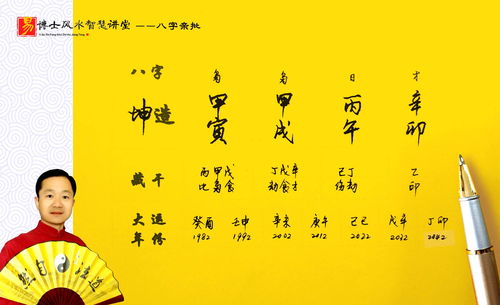 易 博士风水智慧讲堂 ——八字亲批
八字 枭 枭 日 才
坤造 甲寅 甲戌 丙午 辛卯
藏干 丙甲戊 丁戊辛 己丁 乙
比枭食 劫食才 伤劫 印
大运 癸酉 壬申 辛未 庚午 己巳 戊辰 丁卯
年份 1982 1992 2002 2012 2022 2032 2042
然自法道